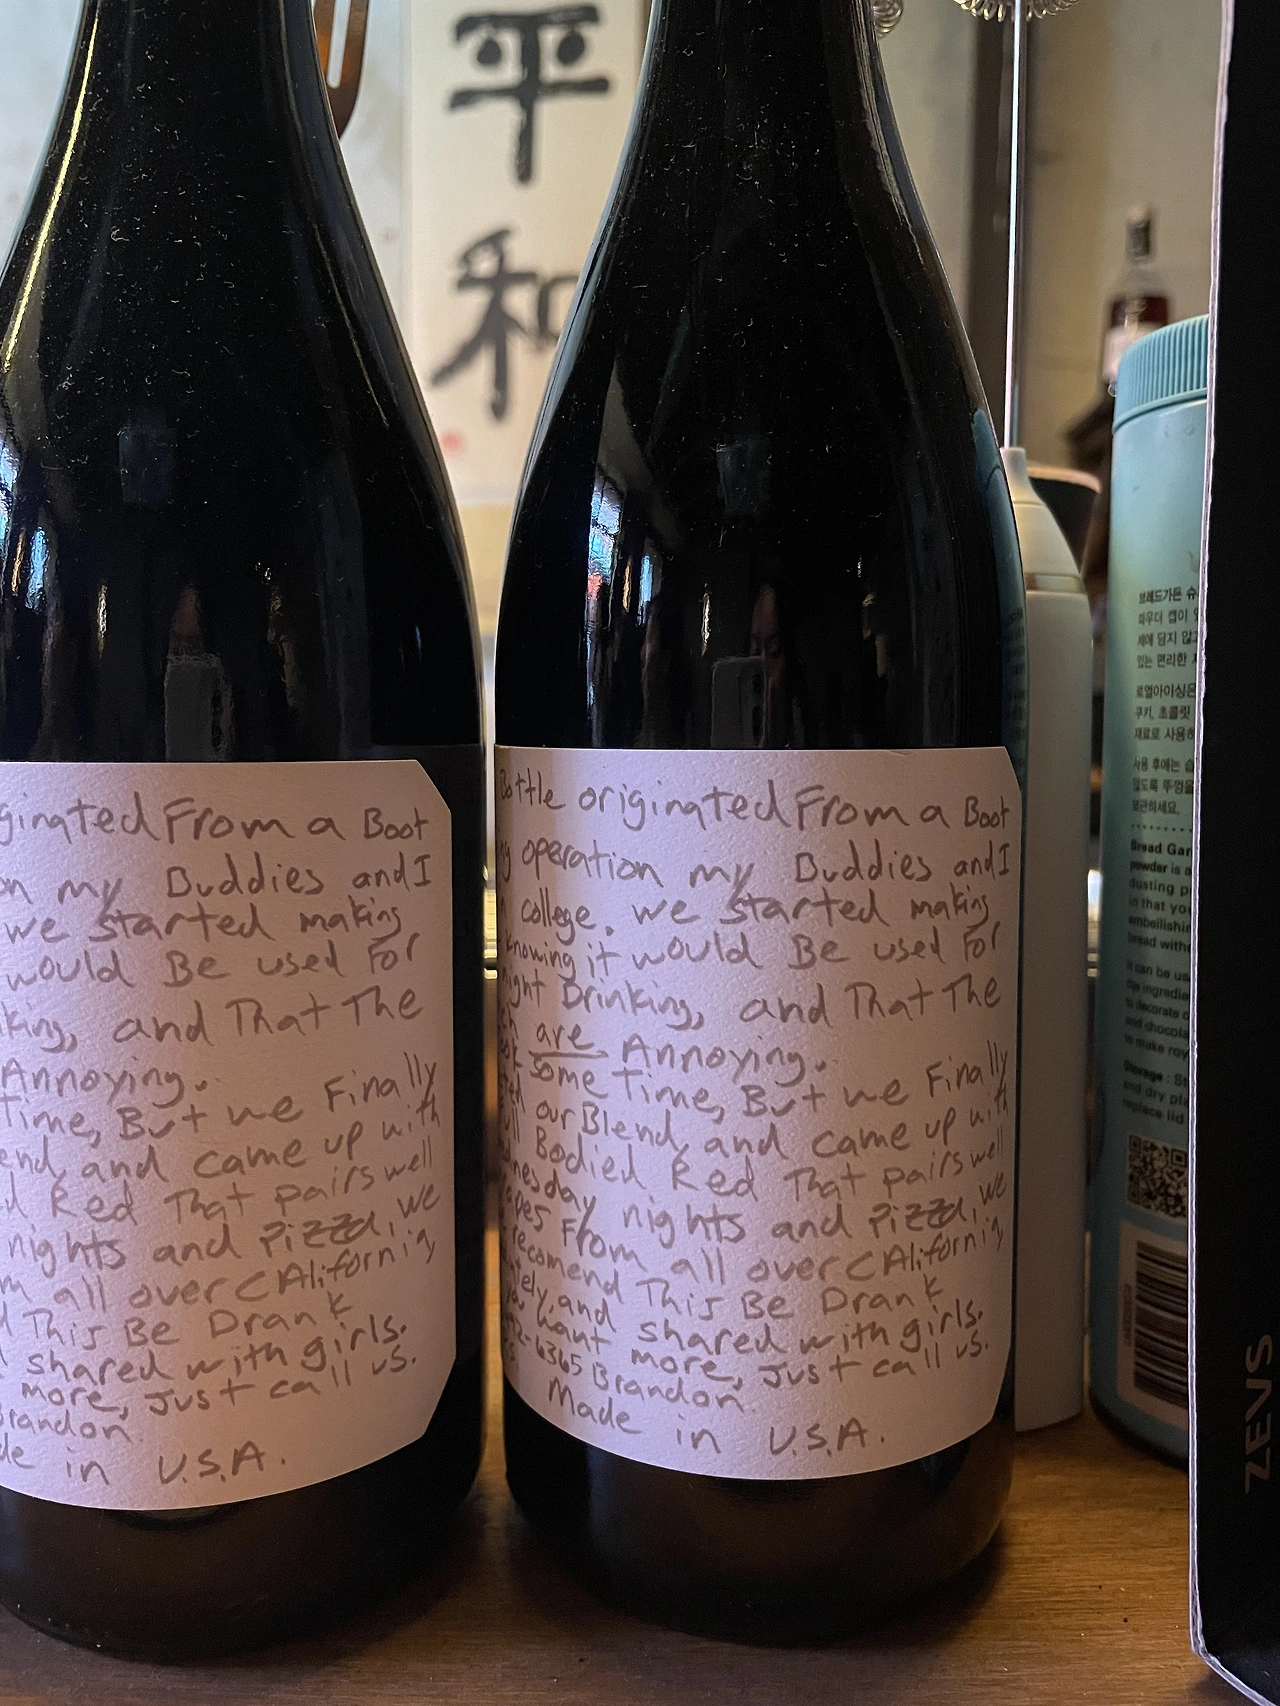 平
和
ginated From a Boot
on my Buddies and I
we started making
would Be used For
king, and That The
Annoying.
Time, But we Finally
end, and came up with
d Red That pairs well
nights and Pizza, we
m all over CAlifornia,
d This Be Drank
d shared with girls.
more, Just call us.
Brandon.
de in U.S.A.
Bottle originated From a Boot
ng operation my Buddies and I
n college. we started making
knowing it would Be used For
night Drinking, and That The
ch are Annoying.
ook some Time, But we Finally
cted our Blend, and came up with
ull Bodied Red That pairs well
dnesday nights and Pizza, we
apes From all over CAlifornia,
recomend This Be Drank
ately, and shared with girls.
you want more, Just call us.
992-6365 Brandon.
Made in U.S.A.
브레드가든 슈
파우더 캡이
세에 담지 않고
있는 편리한
로열아이싱은
쿠키, 초콜릿
재료로 사용하
사용 후에는 습
않도록 뚜껑을
보관하세요.
Bread Gar
powder is a
dusting p
in that you
embellishin
bread witho
It can be us
the ingredie
to decorate c
and chocola
to make roy
Storage : St
and dry pla
replace lid
ZEVS